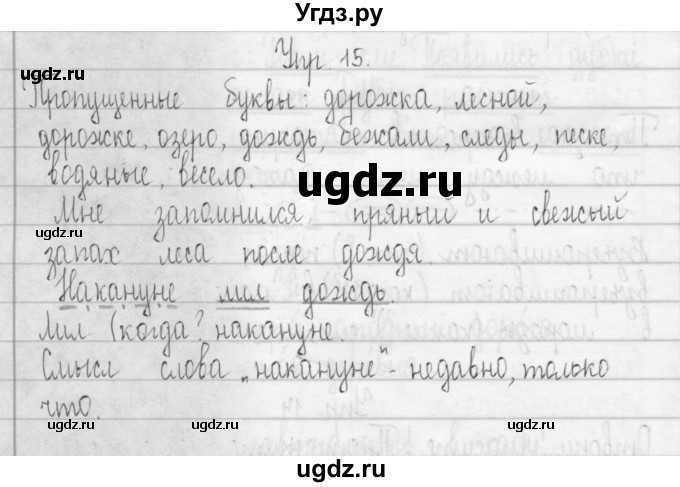 Угdз.ру
Упр. 15.
ugdz.ru ugdz.ru
Пропущенные буквы: дорожка, лесной,
дорожке, озеро, дождь, бежали, следы, песке,
водяные, весело.
ugdz.ru
Мне запомнился пряный и свежый
запах леса после дождя.
ugdz.ru ugdz.ru
Накануне лил дождь.
Лил (когда? накануне.
Смысл слова „накануне" - недавно, только
что.
ugdz.ru ugdz.ru ugdz.ru
ugdz.ru